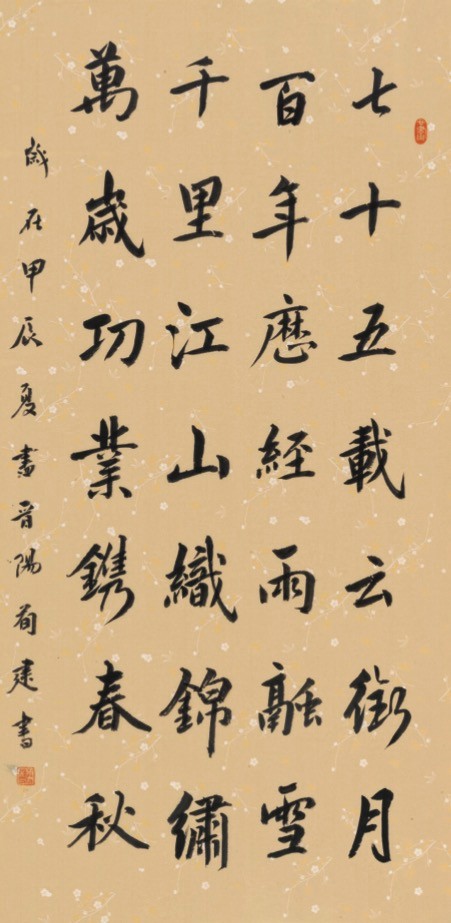 七十五載云銜月
百年歷經雨融雪
千里江山織錦繡
萬歲功業鐫春秋
歲在甲辰夏書晉陽荀建書